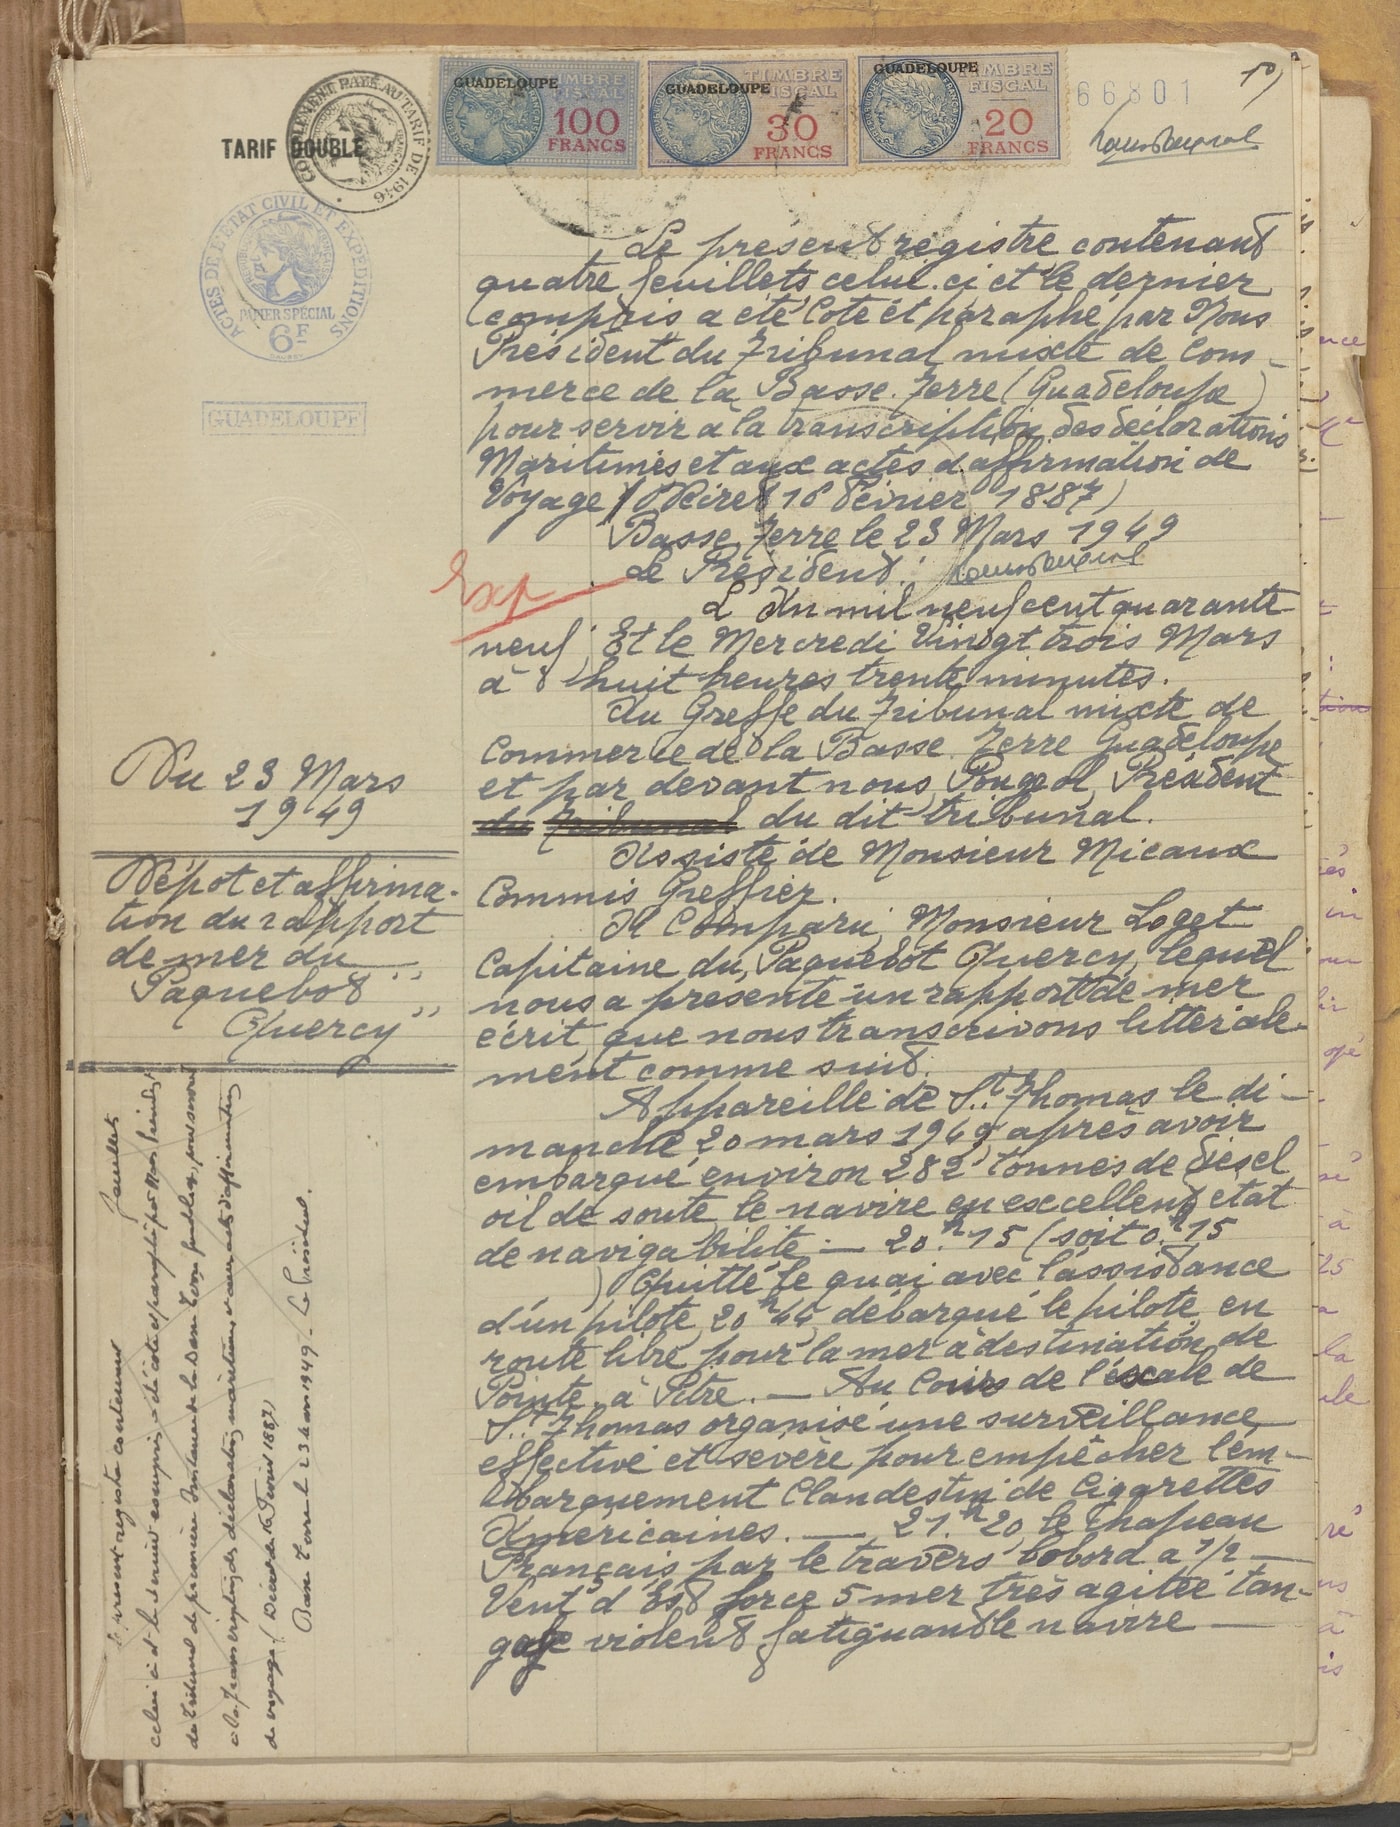 COMPLEMENT PAYÉ AU TARIF DE 1946
TARIF DOUBLE
GUADELOUPE
TIMBRE
FISCAL
100
FRANCS
GUADELOUPE
TIMBRE
FISCAL
30
FRANCS
GUADELOUPE
TIMBRE
FISCAL
20
FRANCS
66801
ACTES DE L'ETAT CIVIL ET EXPEDITIONS
PAPIER SPÉCIAL
6F
GUADELOUPE
Le présent registre contenant
quatre feuillets celui-ci et le dernier
compris a été coté et paraphé par Nous
Président du Tribunal mixte de Com-
merce de la Basse-Terre (Guadeloupe)
pour servir à la transcription des déclarations
Maritimes et aux actes d'affirmation de
Voyage (Décret 16 février 1887)
Basse-Terre le 23 Mars 1949
Le Président.
Exp
L'An mil neuf cent quarante
neuf, Et le Mercredi Vingt trois Mars
à 8 huit heures trente minutes.
Au Greffe du Tribunal mixte de
Commerce de la Basse-Terre Guadeloupe
et par devant nous, Pougeol, Président
du Tribunal du dit tribunal.
Assisté de Monsieur Micaux
Commis Greffier.
A Comparu, Monsieur Loget
Capitaine du Paquebot Quercy, lequel
nous a présenté un rapport de mer
écrit, que nous transcrivons littérale-
ment comme suit.
Appareillé de St. Thomas le di-
manche 20 mars 1949 après avoir
embarqué environ 282 tonnes de diesel
oil de soute le navire en excellent état
de navigabilité. — 20.h 15 (soit 0.h 15
) Quitté le quai avec l'assistance
d'un pilote, 20h 44 débarqué le pilote, en
route libre pour la mer à destination de
Pointe-à-Pitre. — Au Cours de l'escale de
St. Thomas organisé une surveillance
effective et sévère pour empêcher l'em-
barquement Clandestin de Cigarettes
Américaines. — 21.h 20 le Chapeau
Français par le travers bobord à 1/2 —
Vent d'Est force 5 mer très agitée tan-
gage violent fatiguant le navire —
Du 23 Mars
1949
Dépôt et affirma-
tion du rapport
de mer du
Paquebot "
Quercy"
Le présent registre contenant feuillets
celui-ci et le dernier compris a été coté et paraphé par Nous Président
du Tribunal de première Instance de la Basse-Terre Guadeloupe, pour servir
à la transcription des déclarations maritimes et aux actes d'affirmation
de voyage (Décret du 16 Février 1887)
Basse-Terre le 23 Mars 1949. Le Président.